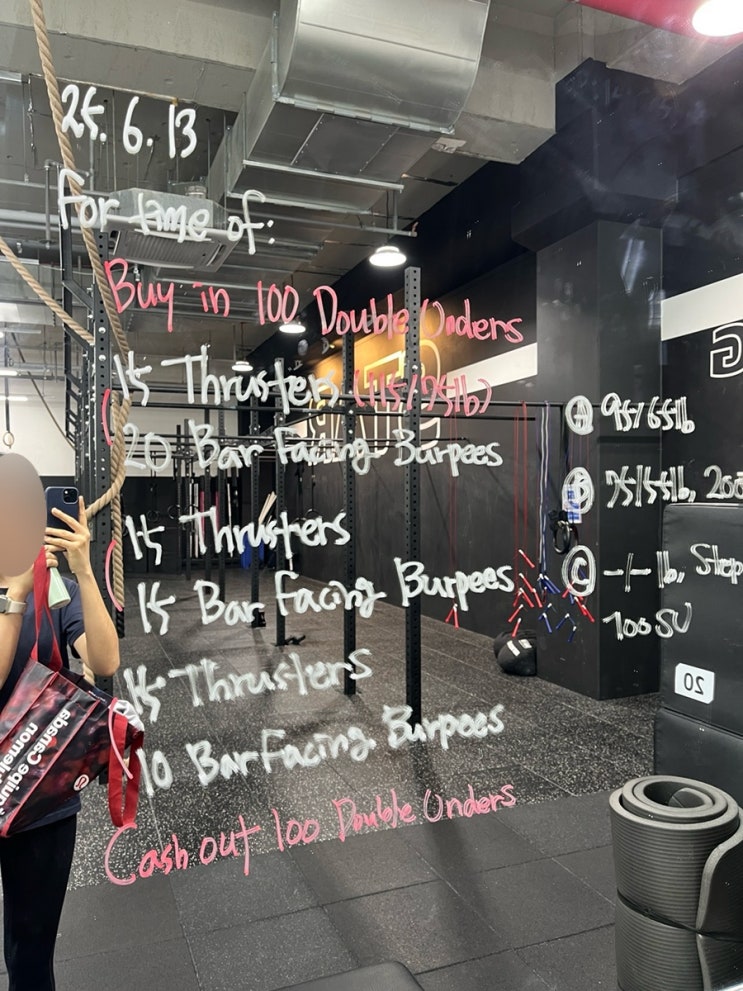 25.6.13
For time of:
Buy in 100 Double Unders
15 Thrusters (115/75lb)
20 Bar Facing Burpees
15 Thrusters
15 Bar Facing Burpees
15 Thrusters
10 Bar Facing Burpees
Cash out 100 Double Unders
Ⓐ 95/65lb
Ⓑ 75/55lb, 200
Ⓒ -/- lb, Step
100 SU
20